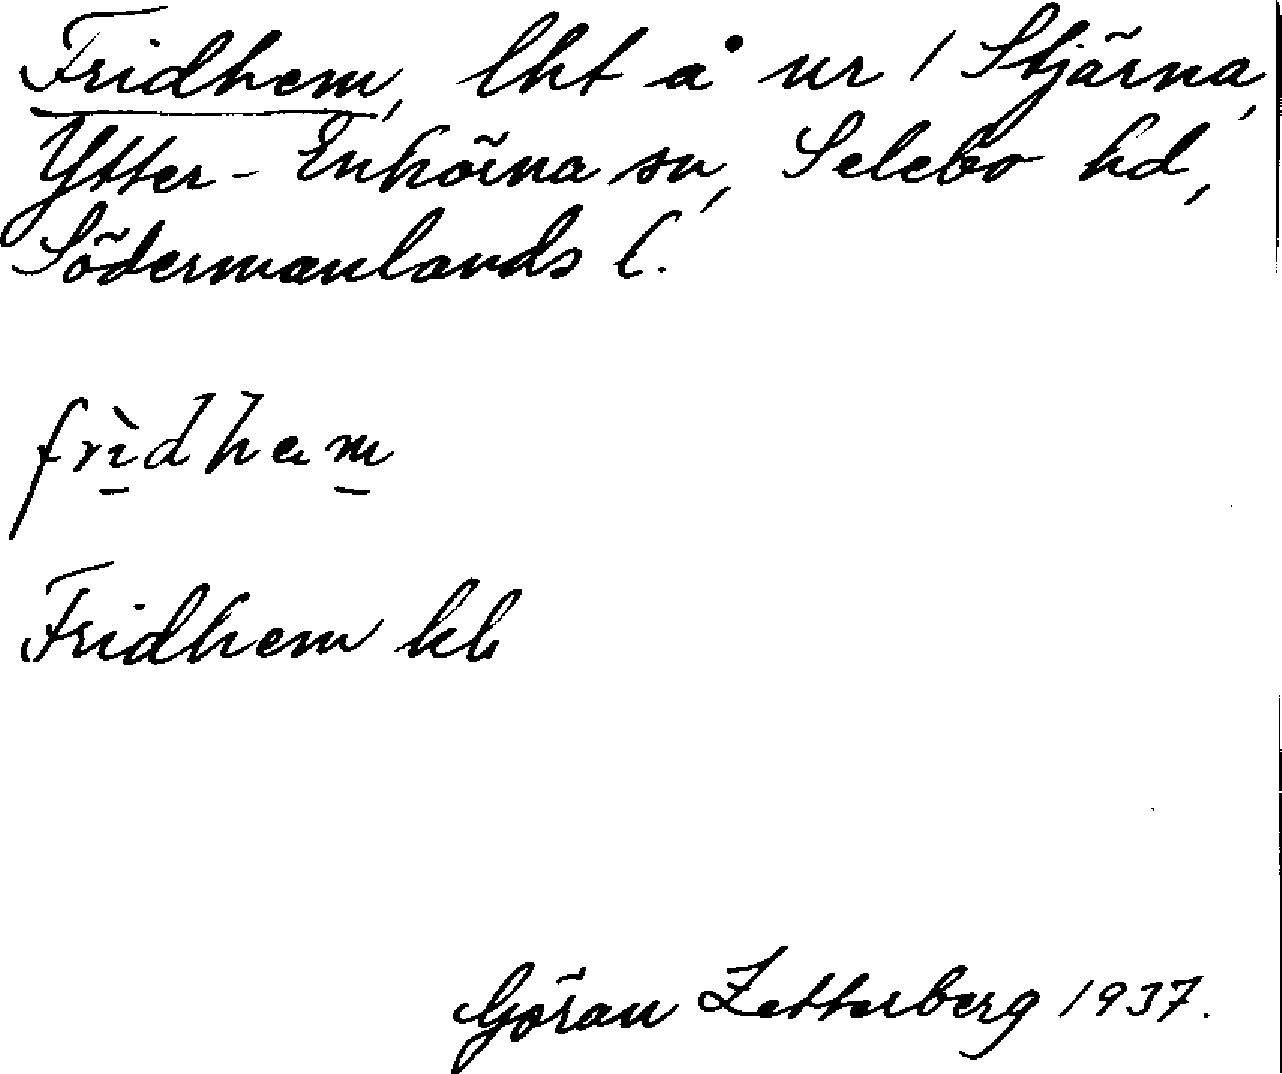 Fridhem, lht å nr 1 Stjärna,
Ytter-Enhörna sn, Selebo hd,
Södermanlands l.
frìdhem
Fridhem kb
Göran Zetterberg 1937.